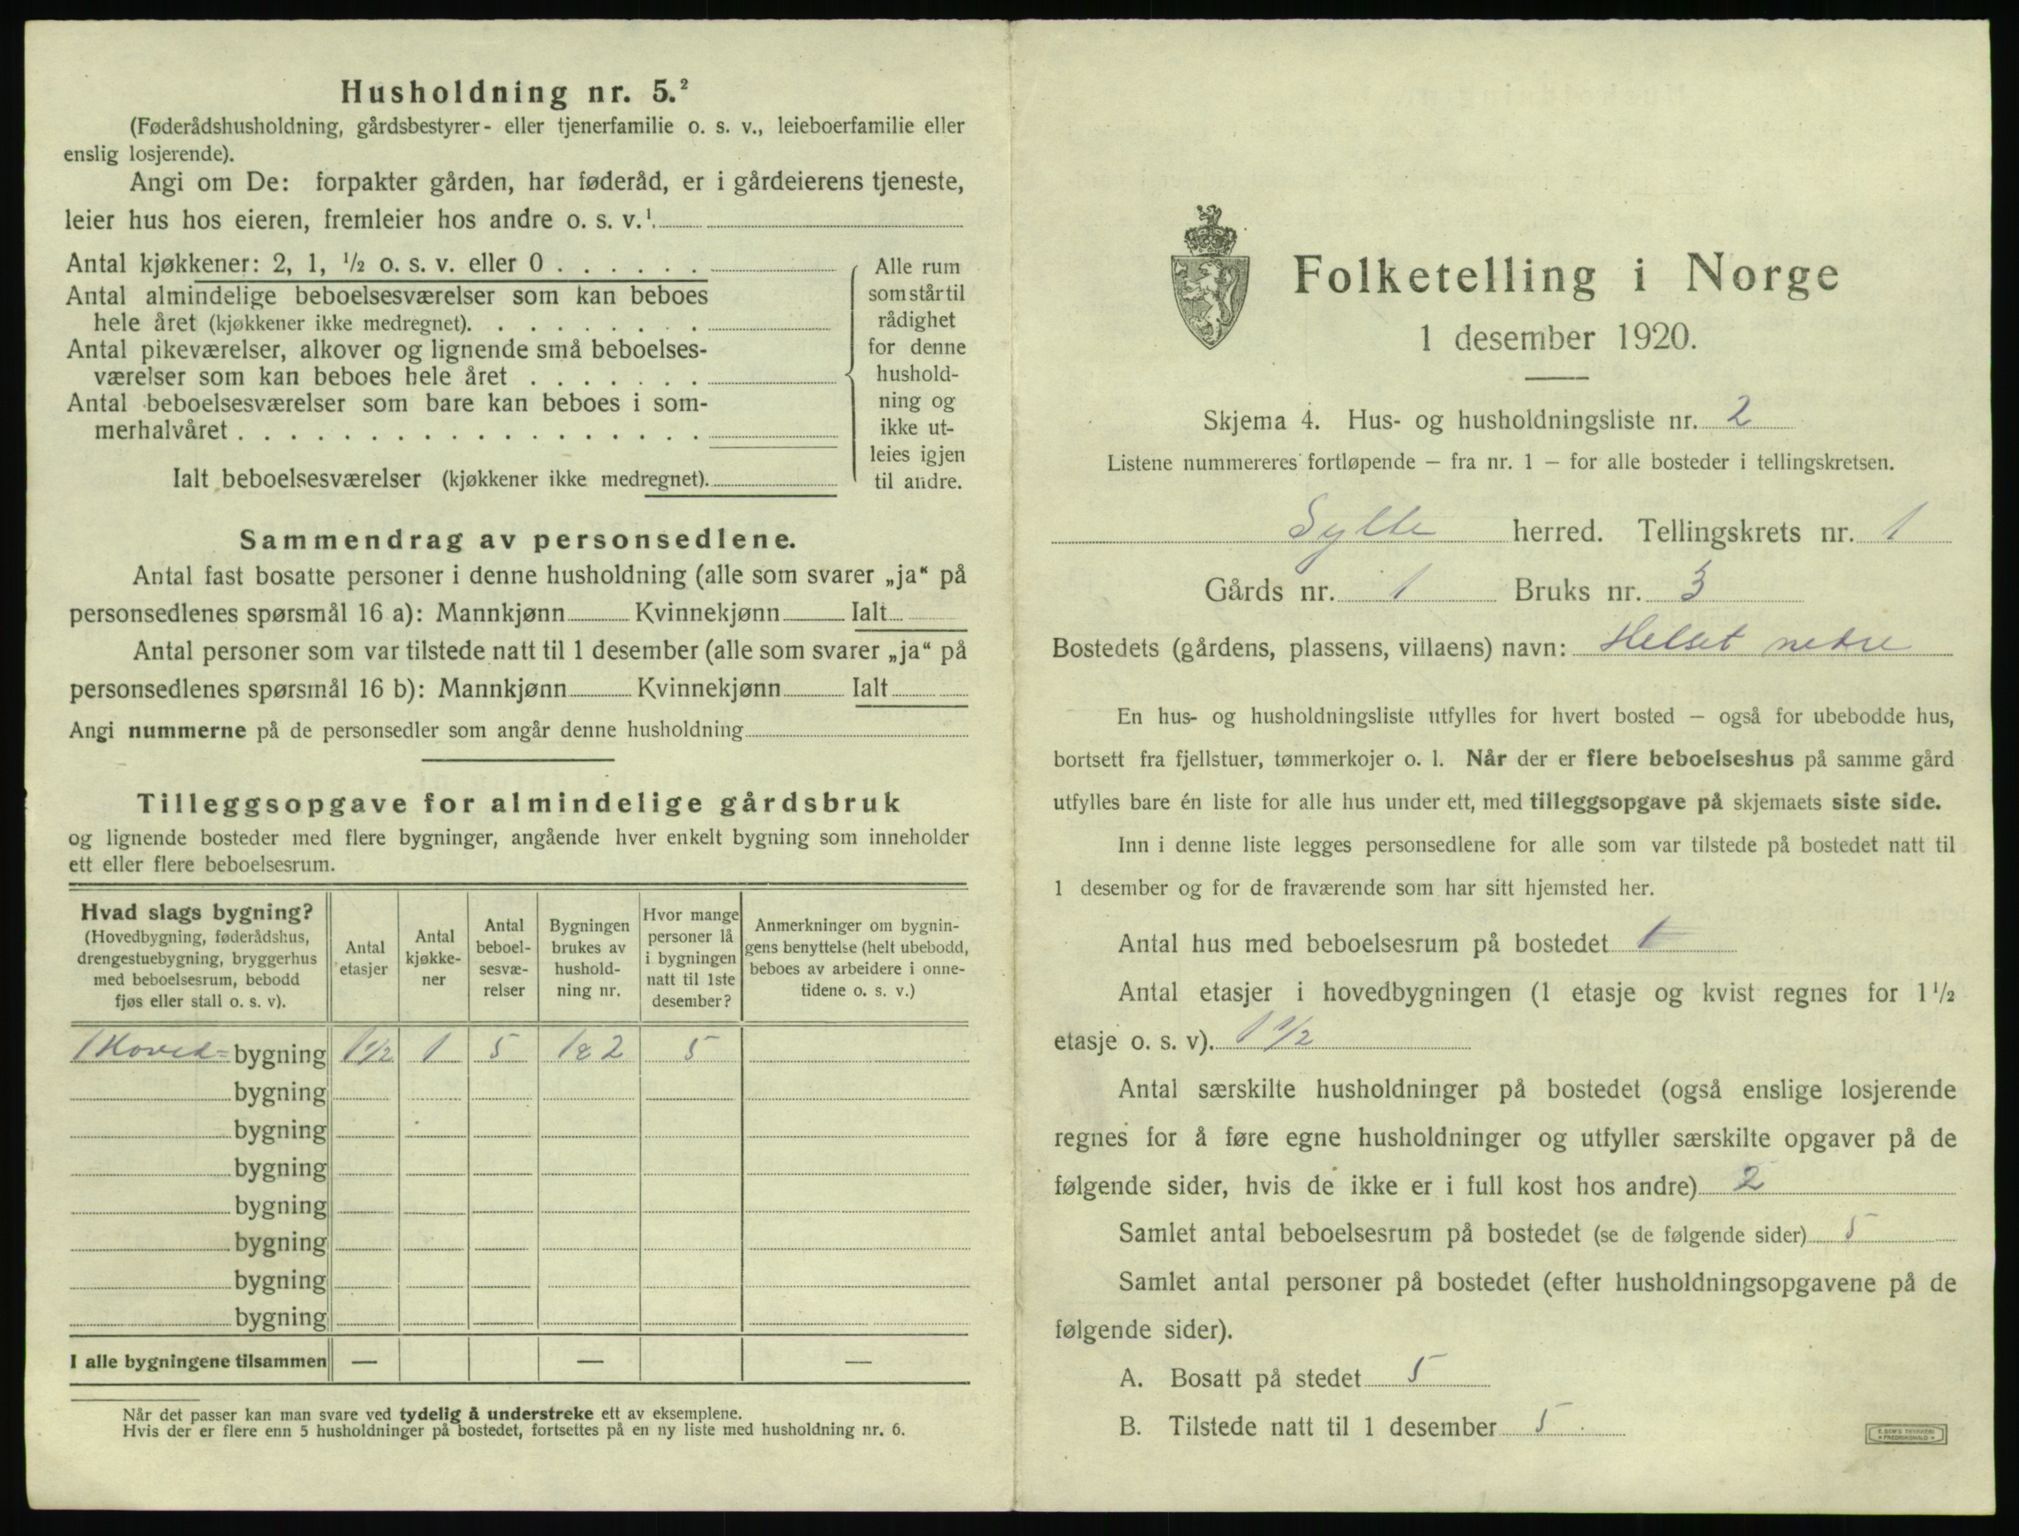 Husholdning nr. 5.²
(Føderådshusholdning, gårdsbestyrer- eller tjenerfamilie o. s. v., leieboerfamilie eller
enslig losjerende).
Angi om De: forpakter gården, har føderåd, er i gårdeierens tjeneste,
leier hus hos eieren, fremleier hos andre o. s. v.¹
Antal kjøkkener: 2, 1, ½ o. s. v. eller 0 . . . . . .
Antal almindelige beboelsesværelser som kan beboes
hele året (kjøkkener ikke medregnet). . . . . . . . .
Antal pikeværelser, alkover og lignende små beboelses-
værelser som kan beboes hele året . . . . . . .
Antal beboelsesværelser som bare kan beboes i som-
merhalvåret . . . . . . . . . . . . . . . . . .
Ialt beboelsesværelser (kjøkkener ikke medregnet).
Alle rum
som står til
rådighet
for denne
hushold-
ning og
ikke ut-
leies igjen
til andre.
Sammendrag av personsedlene.
Antal fast bosatte personer i denne husholdning (alle som svarer „ja“ på
personsedlenes spørsmål 16 a): Mannkjønn Kvinnekjønn Ialt
Antal personer som var tilstede natt til 1 desember (alle som svarer „ja“ på
personsedlenes spørsmål 16 b): Mannkjønn Kvinnekjønn Ialt
Angi nummerne på de personsedler som angår denne husholdning
Tilleggsopgave for almindelige gårdsbruk
og lignende bosteder med flere bygninger, angående hver enkelt bygning som inneholder
ett eller flere beboelsesrum.
Hvad slags bygning?
(Hovedbygning, føderådshus,
drengestuebygning, bryggerhus
med beboelsesrum, bebodd
fjøs eller stall o. s. v).
Antal
etasjer
Antal
kjøkke-
ner
Antal
beboel-
sesvæ-
relser
Bygningen
brukes av
hushold-
ning nr.
Hvor mange
personer lå
i bygningen
natt til 1ste
desember?
Anmerkninger om bygnin-
gens benyttelse (helt ubebodd,
beboes av arbeidere i onne-
tidene o. s. v.)
1 Hoved= bygning 1½ 1 5 1&2 5
bygning
bygning
bygning
bygning
bygning
bygning
bygning
I alle bygningene tilsammen — — —
Når det passer kan man svare ved tydelig å understreke ett av eksemplene.
Hvis der er flere enn 5 husholdninger på bostedet, fortsettes på en ny liste med husholdning nr. 6.
Folketelling i Norge
1 desember 1920.
Skjema 4. Hus- og husholdningsliste nr. 2
Listene nummereres fortløpende – fra nr. 1 – for alle bosteder i tellingskretsen.
Sylte herred. Tellingskrets nr. 1
Gårds nr. 1 Bruks nr. 3
Bostedets (gårdens, plassens, villaens) navn: Helset nedre
En hus- og husholdningsliste utfylles for hvert bosted – også for ubebodde hus,
bortsett fra fjellstuer, tømmerkojer o. l. Når der er flere beboelseshus på samme gård
utfylles bare én liste for alle hus under ett, med tilleggsopgave på skjemaets siste side.
Inn i denne liste legges personsedlene for alle som var tilstede på bostedet natt til
1 desember og for de fraværende som har sitt hjemsted her.
Antal hus med beboelsesrum på bostedet 1
Antal etasjer i hovedbygningen (1 etasje og kvist regnes for 1½
etasje o. s. v). 1½
Antal særskilte husholdninger på bostedet (også enslige losjerende
regnes for å føre egne husholdninger og utfyller særskilte opgaver på de
følgende sider, hvis de ikke er i full kost hos andre) 2
Samlet antal beboelsesrum på bostedet (se de følgende sider) 5
Samlet antal personer på bostedet (efter husholdningsopgavene på de
følgende sider).
A. Bosatt på stedet 5
B. Tilstede natt til 1 desember 5